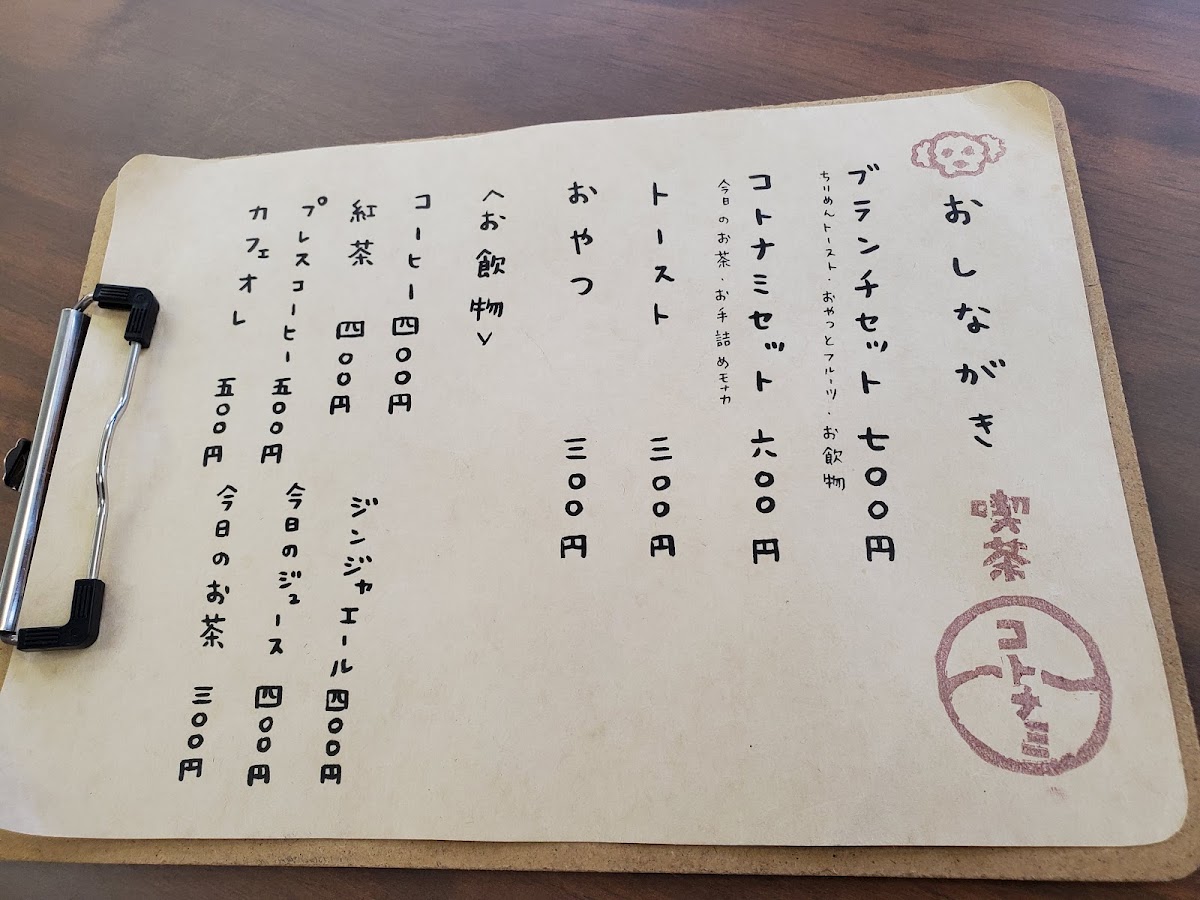 おしながき
喫茶
コトナミ
ブランチセット 七〇〇円
ちりめんトースト・おやつとフルーツ・お飲物
コトナミセット 六〇〇円
今日のお茶・お手詰めモナカ
トースト 三〇〇円
おやつ 三〇〇円
<お飲物>
コーヒー 四〇〇円
紅茶 四〇〇円
プレスコーヒー 五〇〇円
カフェオレ 五〇〇円
ジンジャエール 四〇〇円
今日のジュース 四〇〇円
今日のお茶 三〇〇円